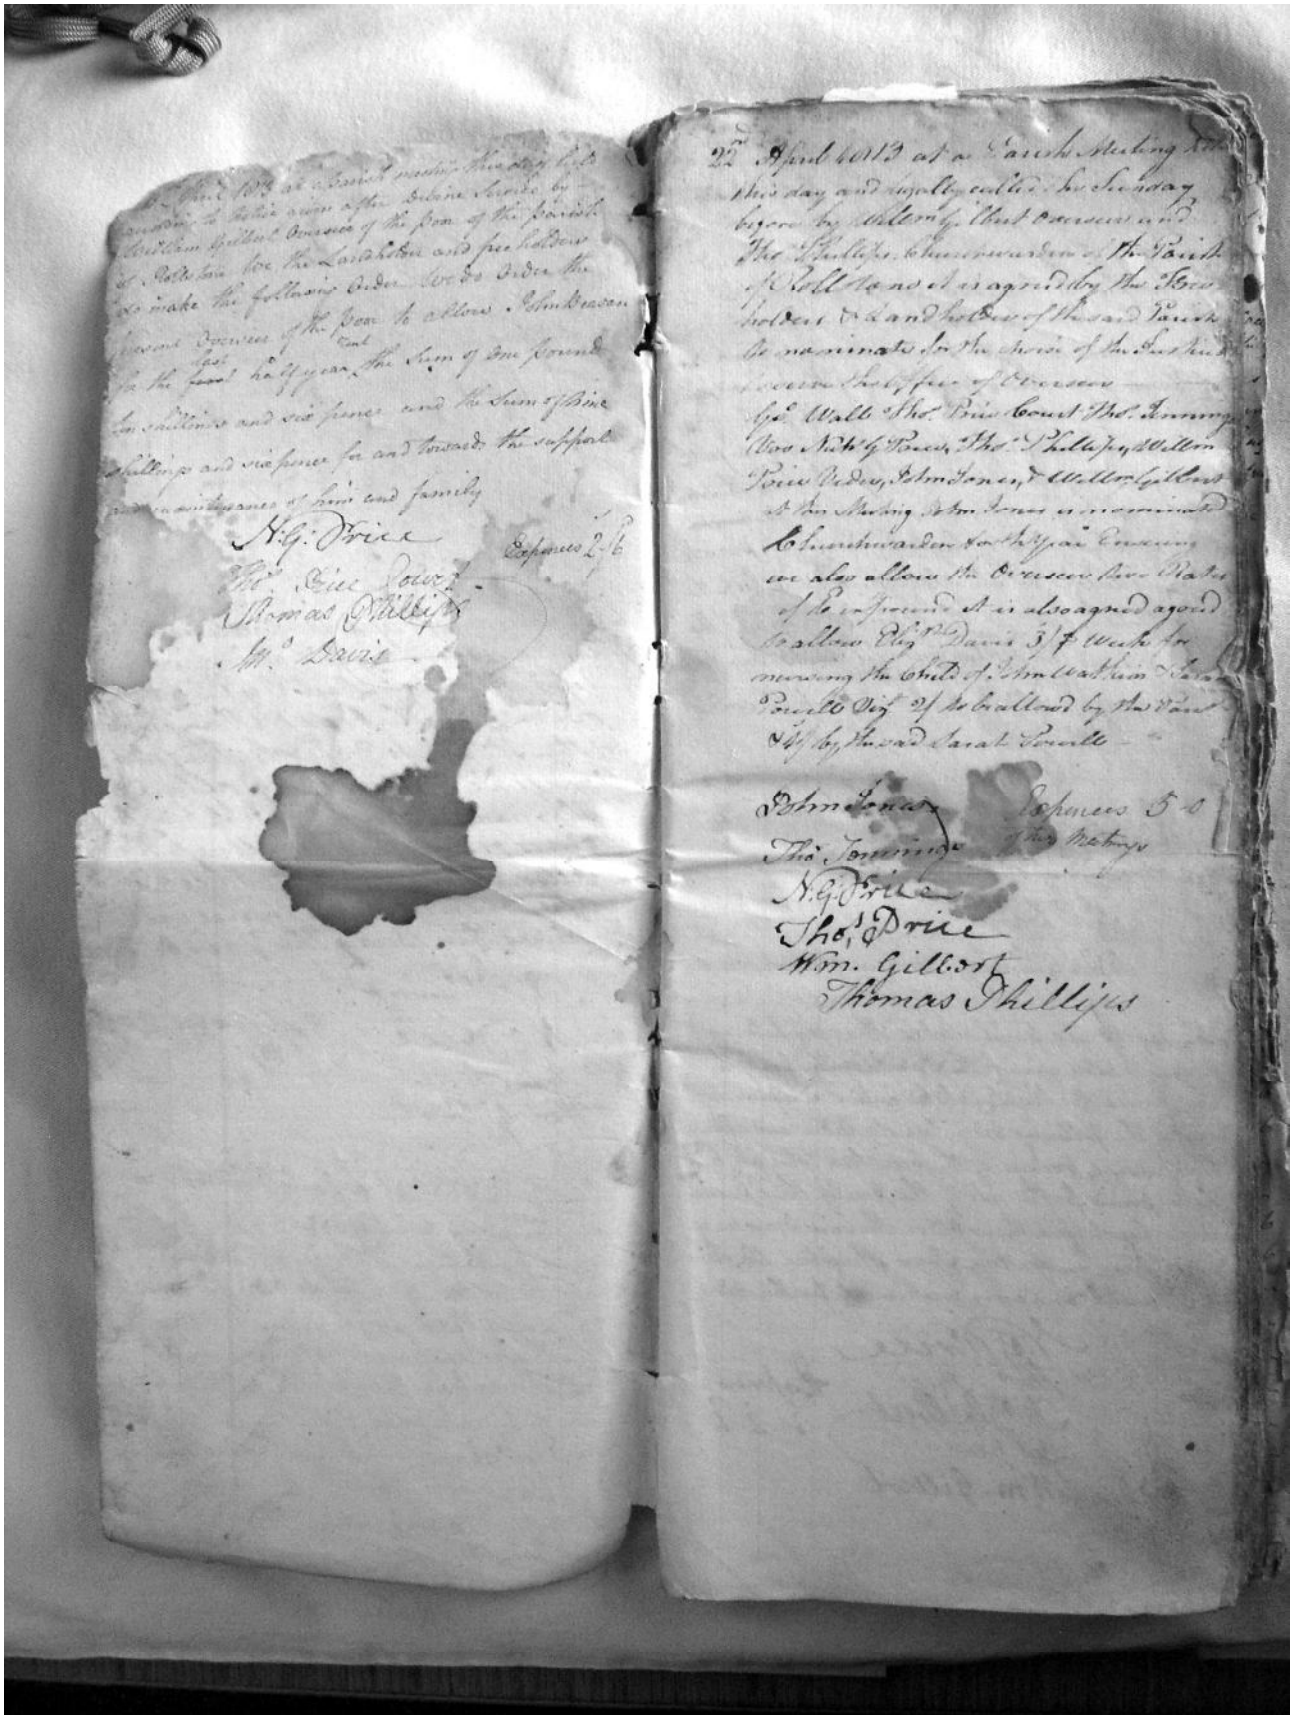 April 1813 at a Parish meeting this day held
according to Notice given after Divine Service by
William Gilbert Overseer of the poor of the parish
of Rollstone We, the Landholders and freeholders
do make the following Order We do Order the
present Overseer of the poor to allow John Beavan
for the last half year rent the Sum of One pound
ten shillings and six pence and the Sum of Nine
shillings and sixpence for and towards the support
and maintenance of him and family
N: G: Price
Expences 2-6
Thos. Price Court
Thomas Phillips
Davis
22nd April 1813 at a Parish Meeting
this day and legally called the Sunday
before by Willm Gilbert Overseer and
Thos Phillips Churchwarden of the Parish
of Rollstone it is agreed by the Free
holders & Landholders of the said Parish
to nominate for the choise of the Justices
to serve the Office of Overseer
Wall Thos. Price Court Thos. Jennings
G Price, Thos. Phillips, Willm
Price John Jones, & Willm Gilbert
at this Meeting John Jones is nominated
Churchwarden for the Year Ensuing
we also allow the Overseer two Rates
of in pound it is also agreed agreed
to allow Elizth Davis 3/ Week for
nursing the Child of John Watkins & Sarah
Powell Viz 2/ to be allowed by the
& 1/ by the said Sarah Powell
John Jones
Expences 5-0
of this Meeting
Thos Jennings
N. G. Price
Thos. Price
Wm. Gilbert
Thomas Phillips